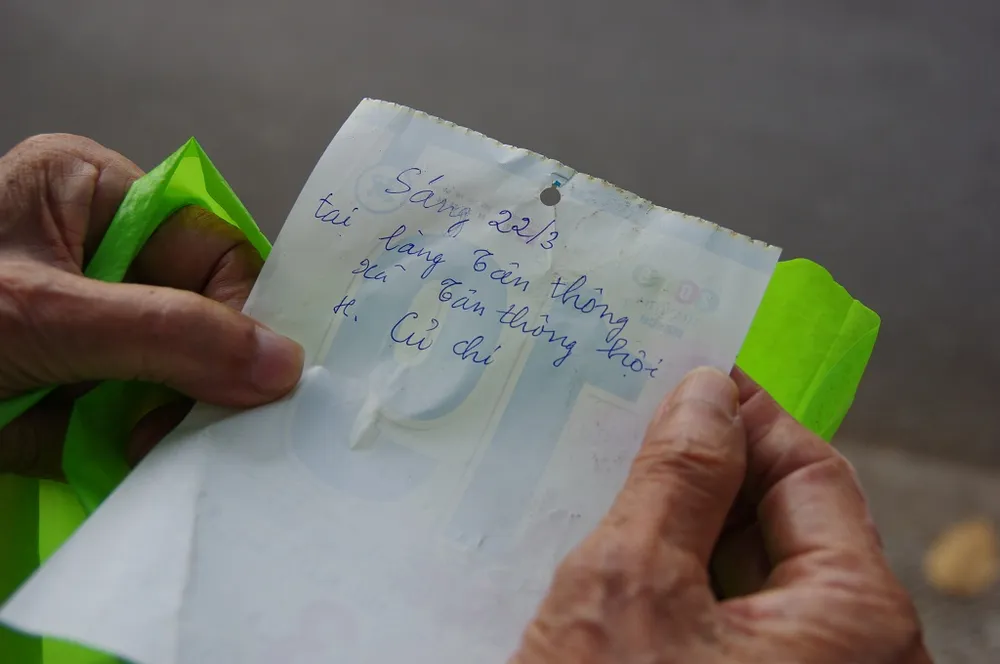 Sáng 22/3
tại làng Tân thông
xã Tân thông hội
H. Củ chi